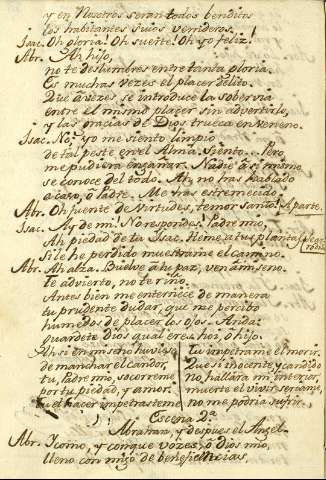 y en Nosotros seran todos benditos
los habitantes suios verrideros.
Isac. Oh gloria! Oh suerte! Oh yo feliz!
Abr. Ah hijo,
no te deslumbres entre tanta gloria.
Es muchas vezes el placer delito.
Que â vezes se introduce la sobervia
entre el mismo placer sin advertirlo,
y las gracias de Dios trueca en veneno.
Isac. No; yo me siento limpio
de tal peste en el Alma. Siento.. Pero
me pudiera engañar. Nadie â si mismo
se conoce del todo. Ah, no has hablado
acaso, ô Padre. Me has estremecido.
Abr. Oh fuente de Virtudes, temor santo! Aparte.
Isac. Ay de mi! No respondes! Padre mio,
Ah piedad de tu Isac. Heme â tus plantas
Si le he perdido muestrame el camino.
Abr. Ah alza. Buelve â tu paz, ven â mi seno.
te advierto, no te riño.
Antes bien me enternece de manera
tu prudente dudar, que me percibo
humedos de placer los ojos. Anda:
guardete Dios qual eres hoi, ô hijo.
Ah si en mi pecho huviese
de manchar el candor,
tu, Padre mio, socorreme
por tu piedad, y amor.
el hacer impetrasteme
tu impetrame el morir.
Que si inocente, y candido
no hallara mi interior,
muerte el vivir seriame,
no me podria sufrir.
Escena 2ª
Abrahan, y despues el Angel.
Abr. Y como, y con que vozes, ô Dios mio,
lleno con migo de beneficencias,